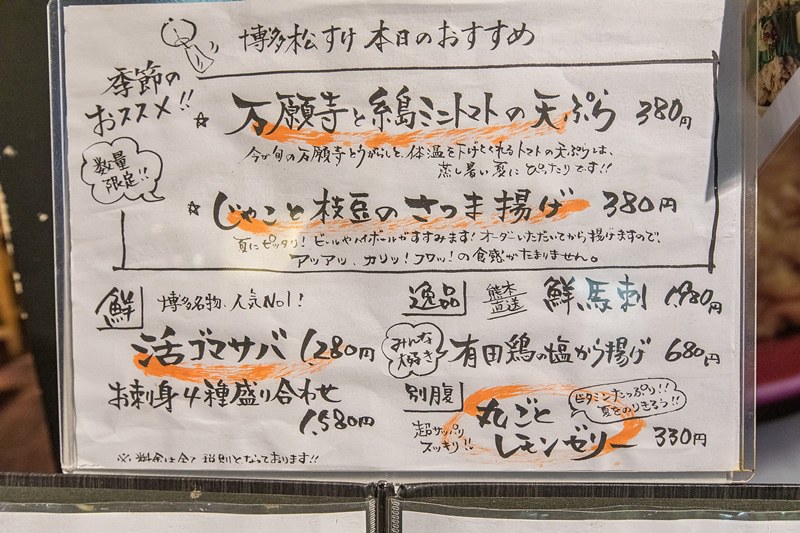 博多松すけ 本日のおすすめ
季節の
おススメ!!
数量
限定!!
☆ 万願寺と糸島ミニトマトの天ぷら 380円
今が旬の万願寺とうがらしと、体温を下げてくれるトマトの天ぷらは、
蒸し暑い夏にぴったりです!!
☆ じゃこと枝豆のさつま揚げ 380円
夏にピッタリ!ビールやハイボールがすすみます!オーダーいただいてから揚げますので、
アツアツ、カリッ!フワッ!の食感がたまりません。
鮮 博多名物、人気No1!
活ゴマサバ 1280円
お刺身4種盛り合わせ
1,580円
※料金は全て税別となっております!!
逸品 熊本
直送 鮮馬刺 1,980円
みんな
大好き 有田鶏の塩から揚げ 680円
別腹
超サッパリ
スッキリ!!
丸ごと
レモンゼリー 330円
ビタミンたっぷり!!
夏をのりきろう!!